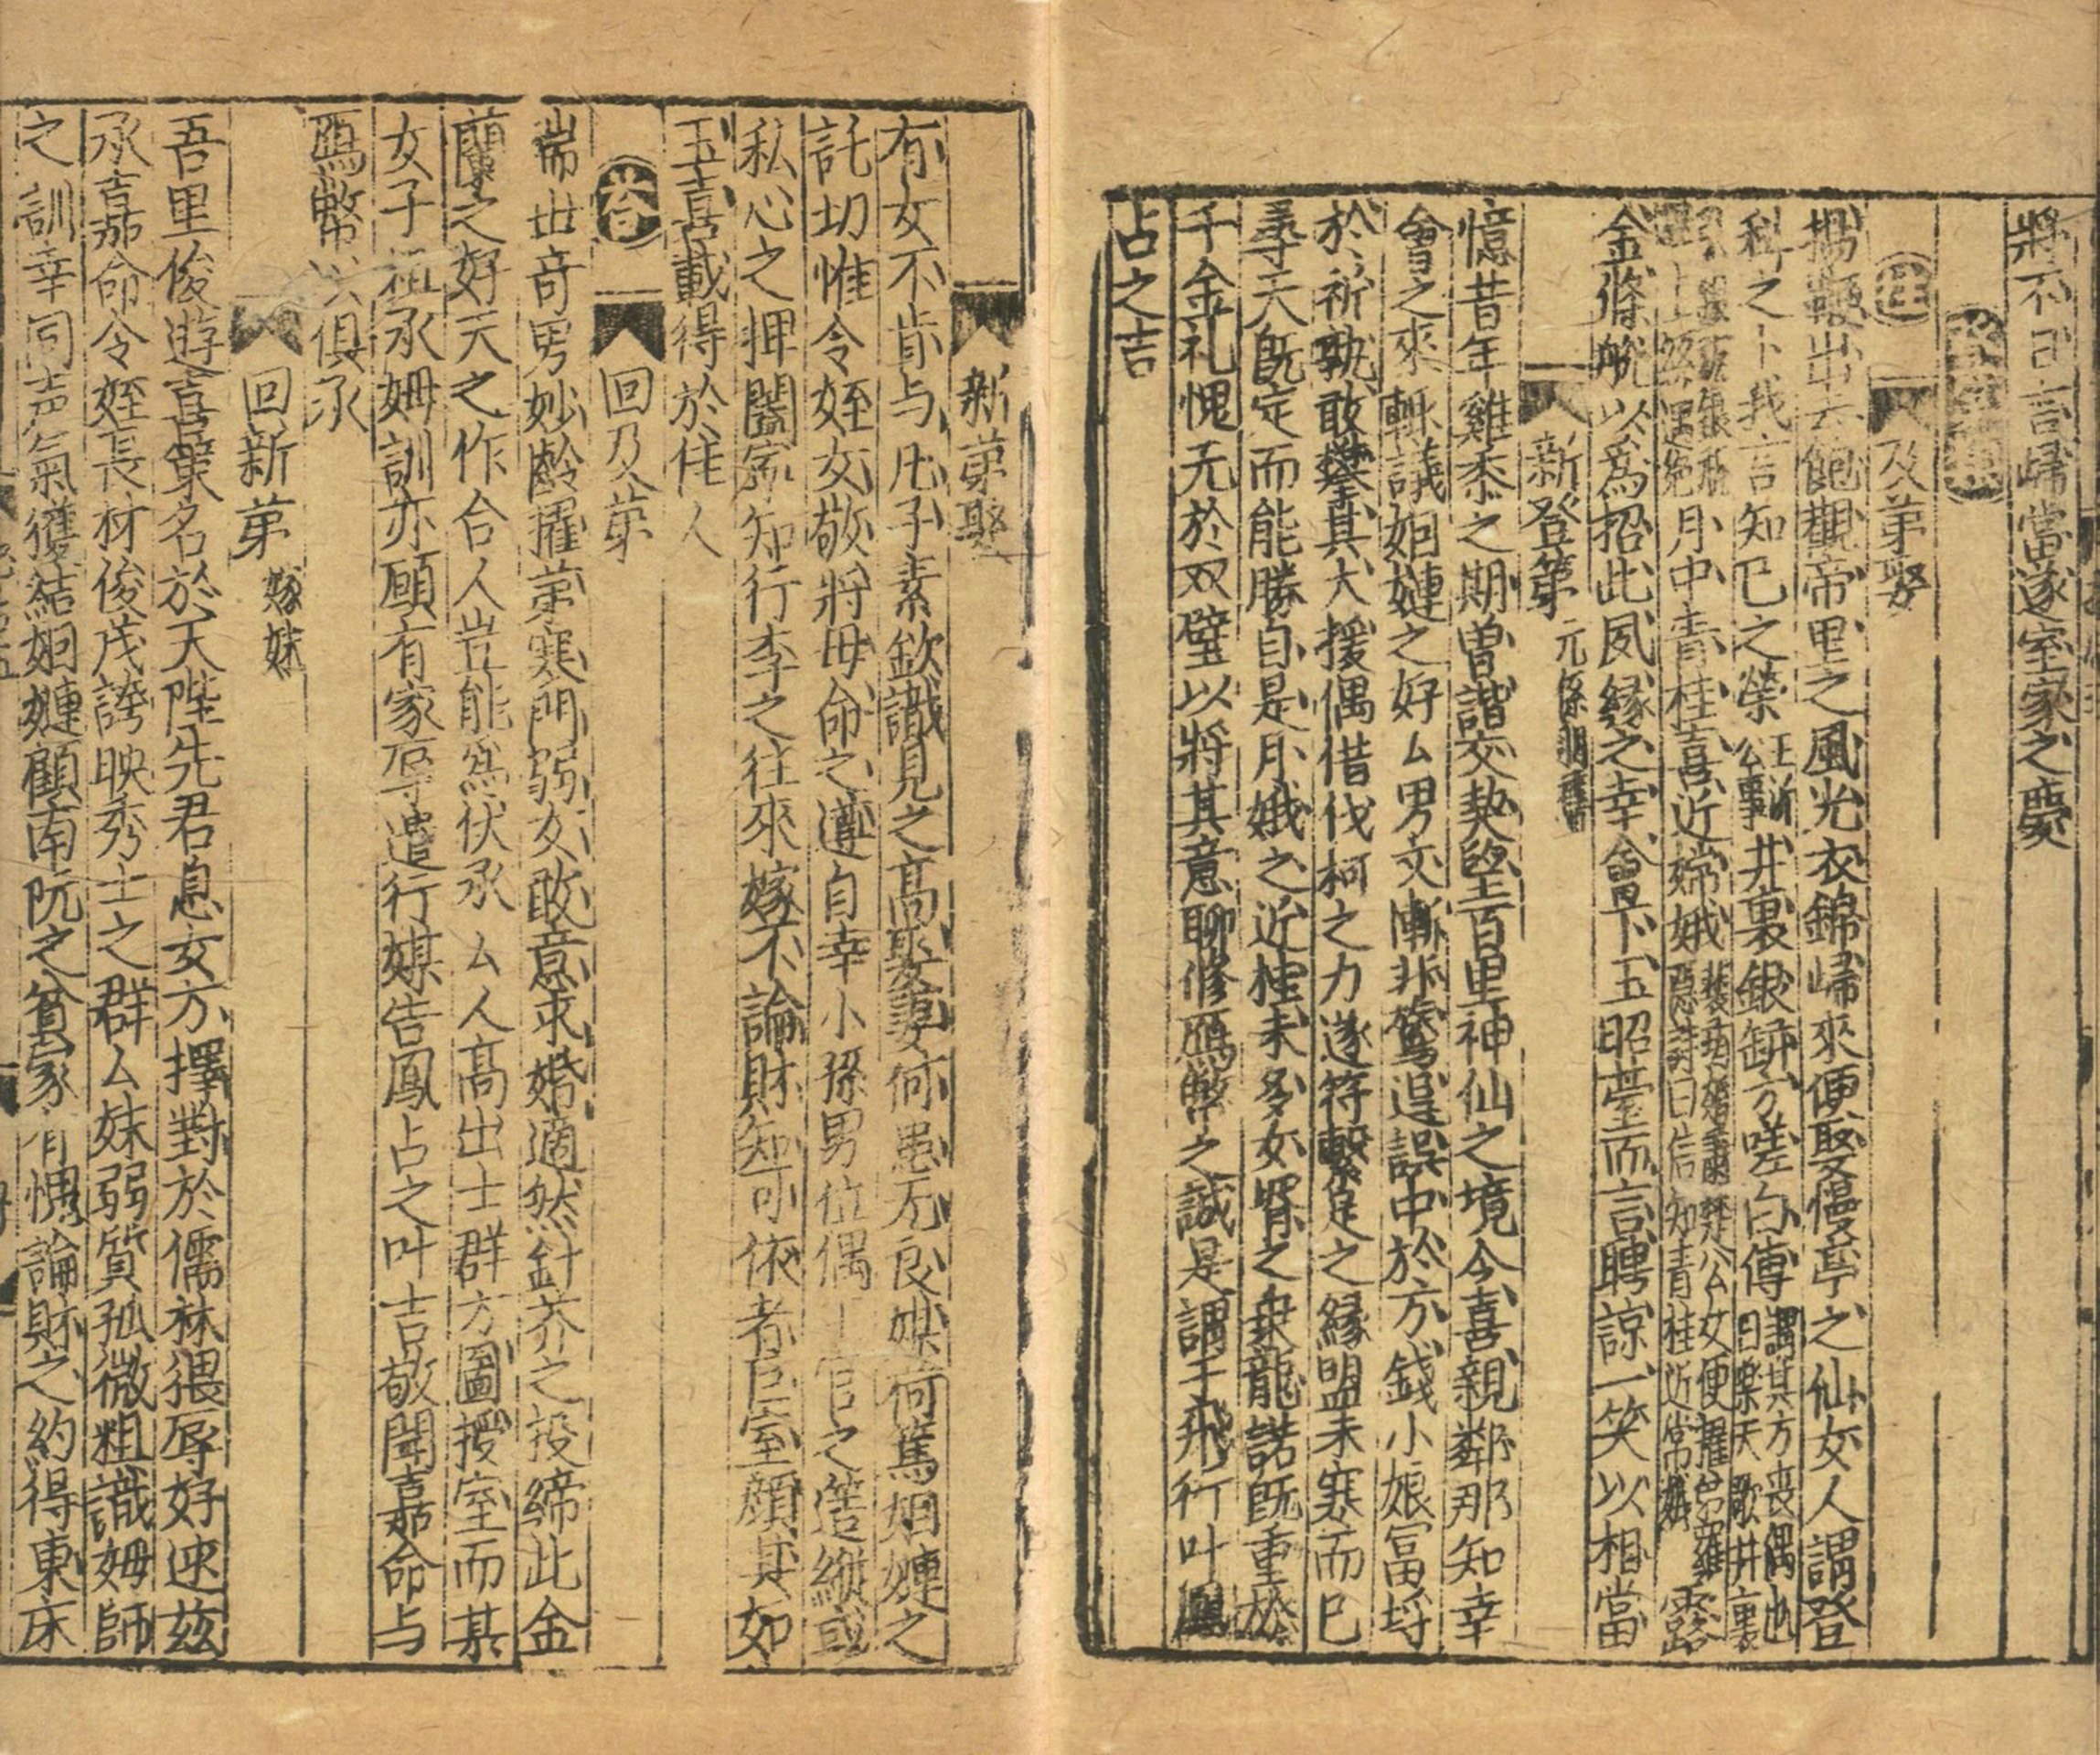 將不日言歸當遂室家之慶
及苐娶
揚鞭出去飽觀帝里之風光衣錦歸來便娶慢亭之仙女人謂登
科之卜我言知己之榮
公事
井裏銀缾方嗟白傳
謂其方丧偶也
曰樂天歌井裏
月中青桂喜近嫦娥
詩曰信知青桂近嫦娥
露
金條帨以爲招此夙縁之幸會下玉昭臺而言聘諒一笑以相當
新登第
憶昔年雞黍之期曽諧交契望百里神仙之境今喜親鄰那知幸
會之來輙議姻嫌之好厶男文慚非鷟逞誤中於方錢小娘冨埒
於祈覬敢攀其大援偶借伐柯之力遂符繫足之縁盟未寒而已
尋天旣定而能勝自是月娥之近桂未多女胥之乗龍諾旣重於
千金礼愧无於双璧以將其意聊修鴈幣之誠是謂于飛行叶鳳
占之吉
新苐娶
有女不肯与凡子素欽識見之高娶妻何患无良媒荷篤姻嫌之
託切惟令姪女敬將母命之遵自幸小孫男位偶
官之簉縱或
私心之押闔寧知行李之往來嫁不論財知可依者巨室顔其如
玉喜載得於佳人
荅
回及苐
耑丗竒男妙齡擢苐寒門弱女敢意求婚適然針芥之投締此金
蘭之好天之作合人豈能爲伏承厶人高出士群方圖授室而某
女子祖承姆訓亦願有家辱遣行媒告鳳占之叶吉敬聞嘉命与
鴈幣以俱承
回新苐
嫁妹
吾里俊遊喜策名於天陛先君息女方擇對於儒林猥辱好逑兹
承嘉命令姪長材俊茂誇映秀士之群厶妹弱質孤微粗識姆師
之訓幸同声氣獲結姻嫌顧南阮之貧家有愧論財之約得東床